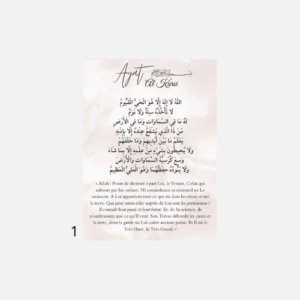 Ayat
Al Kursi
اللَّهُ لَا إِلَٰهَ إِلَّا هُوَ الْحَيُّ الْقَيُّومُ
لَا تَأْخُذُهُ سِنَةٌ وَلَا نَوْمٌ
لَهُ مَا فِي السَّمَاوَاتِ وَمَا فِي الْأَرْضِ
مَنْ ذَا الَّذِي يَشْفَعُ عِنْدَهُ إِلَّا بِإِذْنِهِ
يَعْلَمُ مَا بَيْنَ أَيْدِيهِمْ وَمَا خَلْفَهُمْ
وَلَا يُحِيطُونَ بِشَيْءٍ مِنْ عِلْمِهِ إِلَّا بِمَا شَاءَ
وَسِعَ كُرْسِيُّهُ السَّمَاوَاتِ وَالْأَرْضَ
وَلَا يَئُودُهُ حِفْظُهُمَا وَهُوَ الْعَلِيُّ الْعَظِيمُ
« Allah ! Point de divinité à part Lui, le Vivant, Celui qui
subsiste par lui-même. Ni somnolence ni sommeil ne Le
saisissent. A Lui appartient tout ce qui est dans les cieux et sur
la terre. Qui peut intercéder auprès de Lui sans Sa permission ?
Il connaît leur passé et leur futur. Et, de Sa science, ils
n'embrassent que ce qu'Il veut. Son Trône déborde les cieux et
la terre, dont la garde ne Lui coûte aucune peine. Et Il est le
Très Haut, le Très Grand. »
1